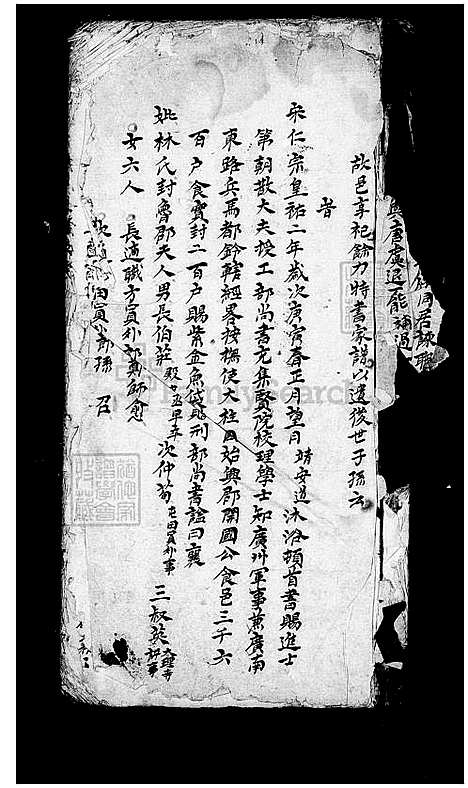 與唐虞退能補過
故邑享祀餘力特書家譜以遺後世子孫云
昔
宋仁宗皇祐二年歲次庚寅春正月望日靖安道沐浴頓首書賜進士
第朝散大夫授工部尚書充集賢院校理學士知廣州軍事兼廣南
東路兵馬都鈐轄經畧按撫使大柱國始興郡開國公食邑三千六
百户食實封二百户賜紫金魚袋贈刑部尚書諡曰襄
妣林氏封魯郡夫人男長伯莊殿中丞早卒次仲荀屯田員外事三叔英大理寺評事
女六人長適職方員外郎真師愈
員外郎孫召
FamilySearch